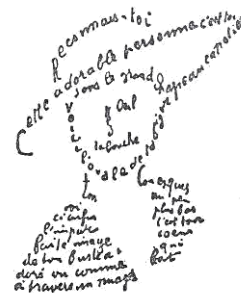 Reconnais-toi
Cette adorable personne c'est toi
sous le grand chapeau canotier
Œil
la bouche
Voici l'ovale de ta figure
ton
cou exquis
voi
ci enfin
l'impar
faite image
de ton buste a
doré vu comme
à travers un nuage
un peu
plus bas
c'est ton
coeur
qui
bat